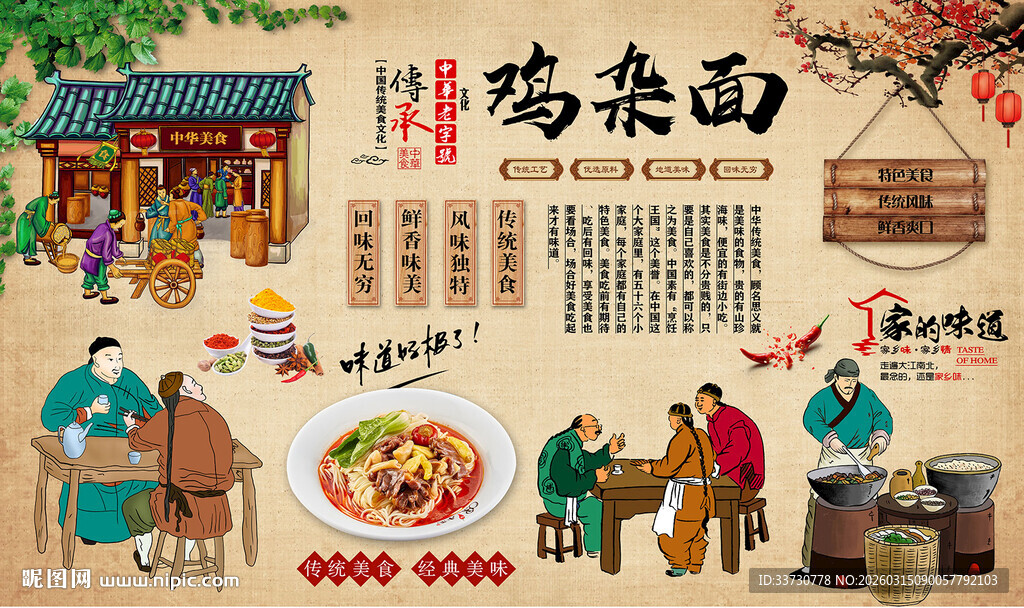 鸡杂面
中华老字號
文化
傳承
【中国传统美食文化】
中华美食
中华美食
传统工艺
优选原料
地道美味
回味无穷
特色美食
传统风味
鲜香爽口
传统美食
风味独特
鲜香味美
回味无穷
中华传统美食,顾名思义就
是美味的食物,贵的有山珍
海味,便宜的有街边小吃。
其实美食是不分贵贱的,只
要是自己喜欢的,都可以称
之为美食。中国素有"烹饪
王国。这个美誉。在中国这
个大家庭里,有五十六个小
家庭,每个家庭都有自己的
特色美食。美食吃前有期待
、吃后有回味,享受美食也
要看场合,场合好美食吃起
来才有味道。
味道好极了!
家的味道
家乡味·家乡情
TASTE
OF HOME
走遍大江南北,
最念的,还是家乡味...
传统美食
经典美味
昵图网 www.nipic.com
ID:33730778 NO:20260315090057792103